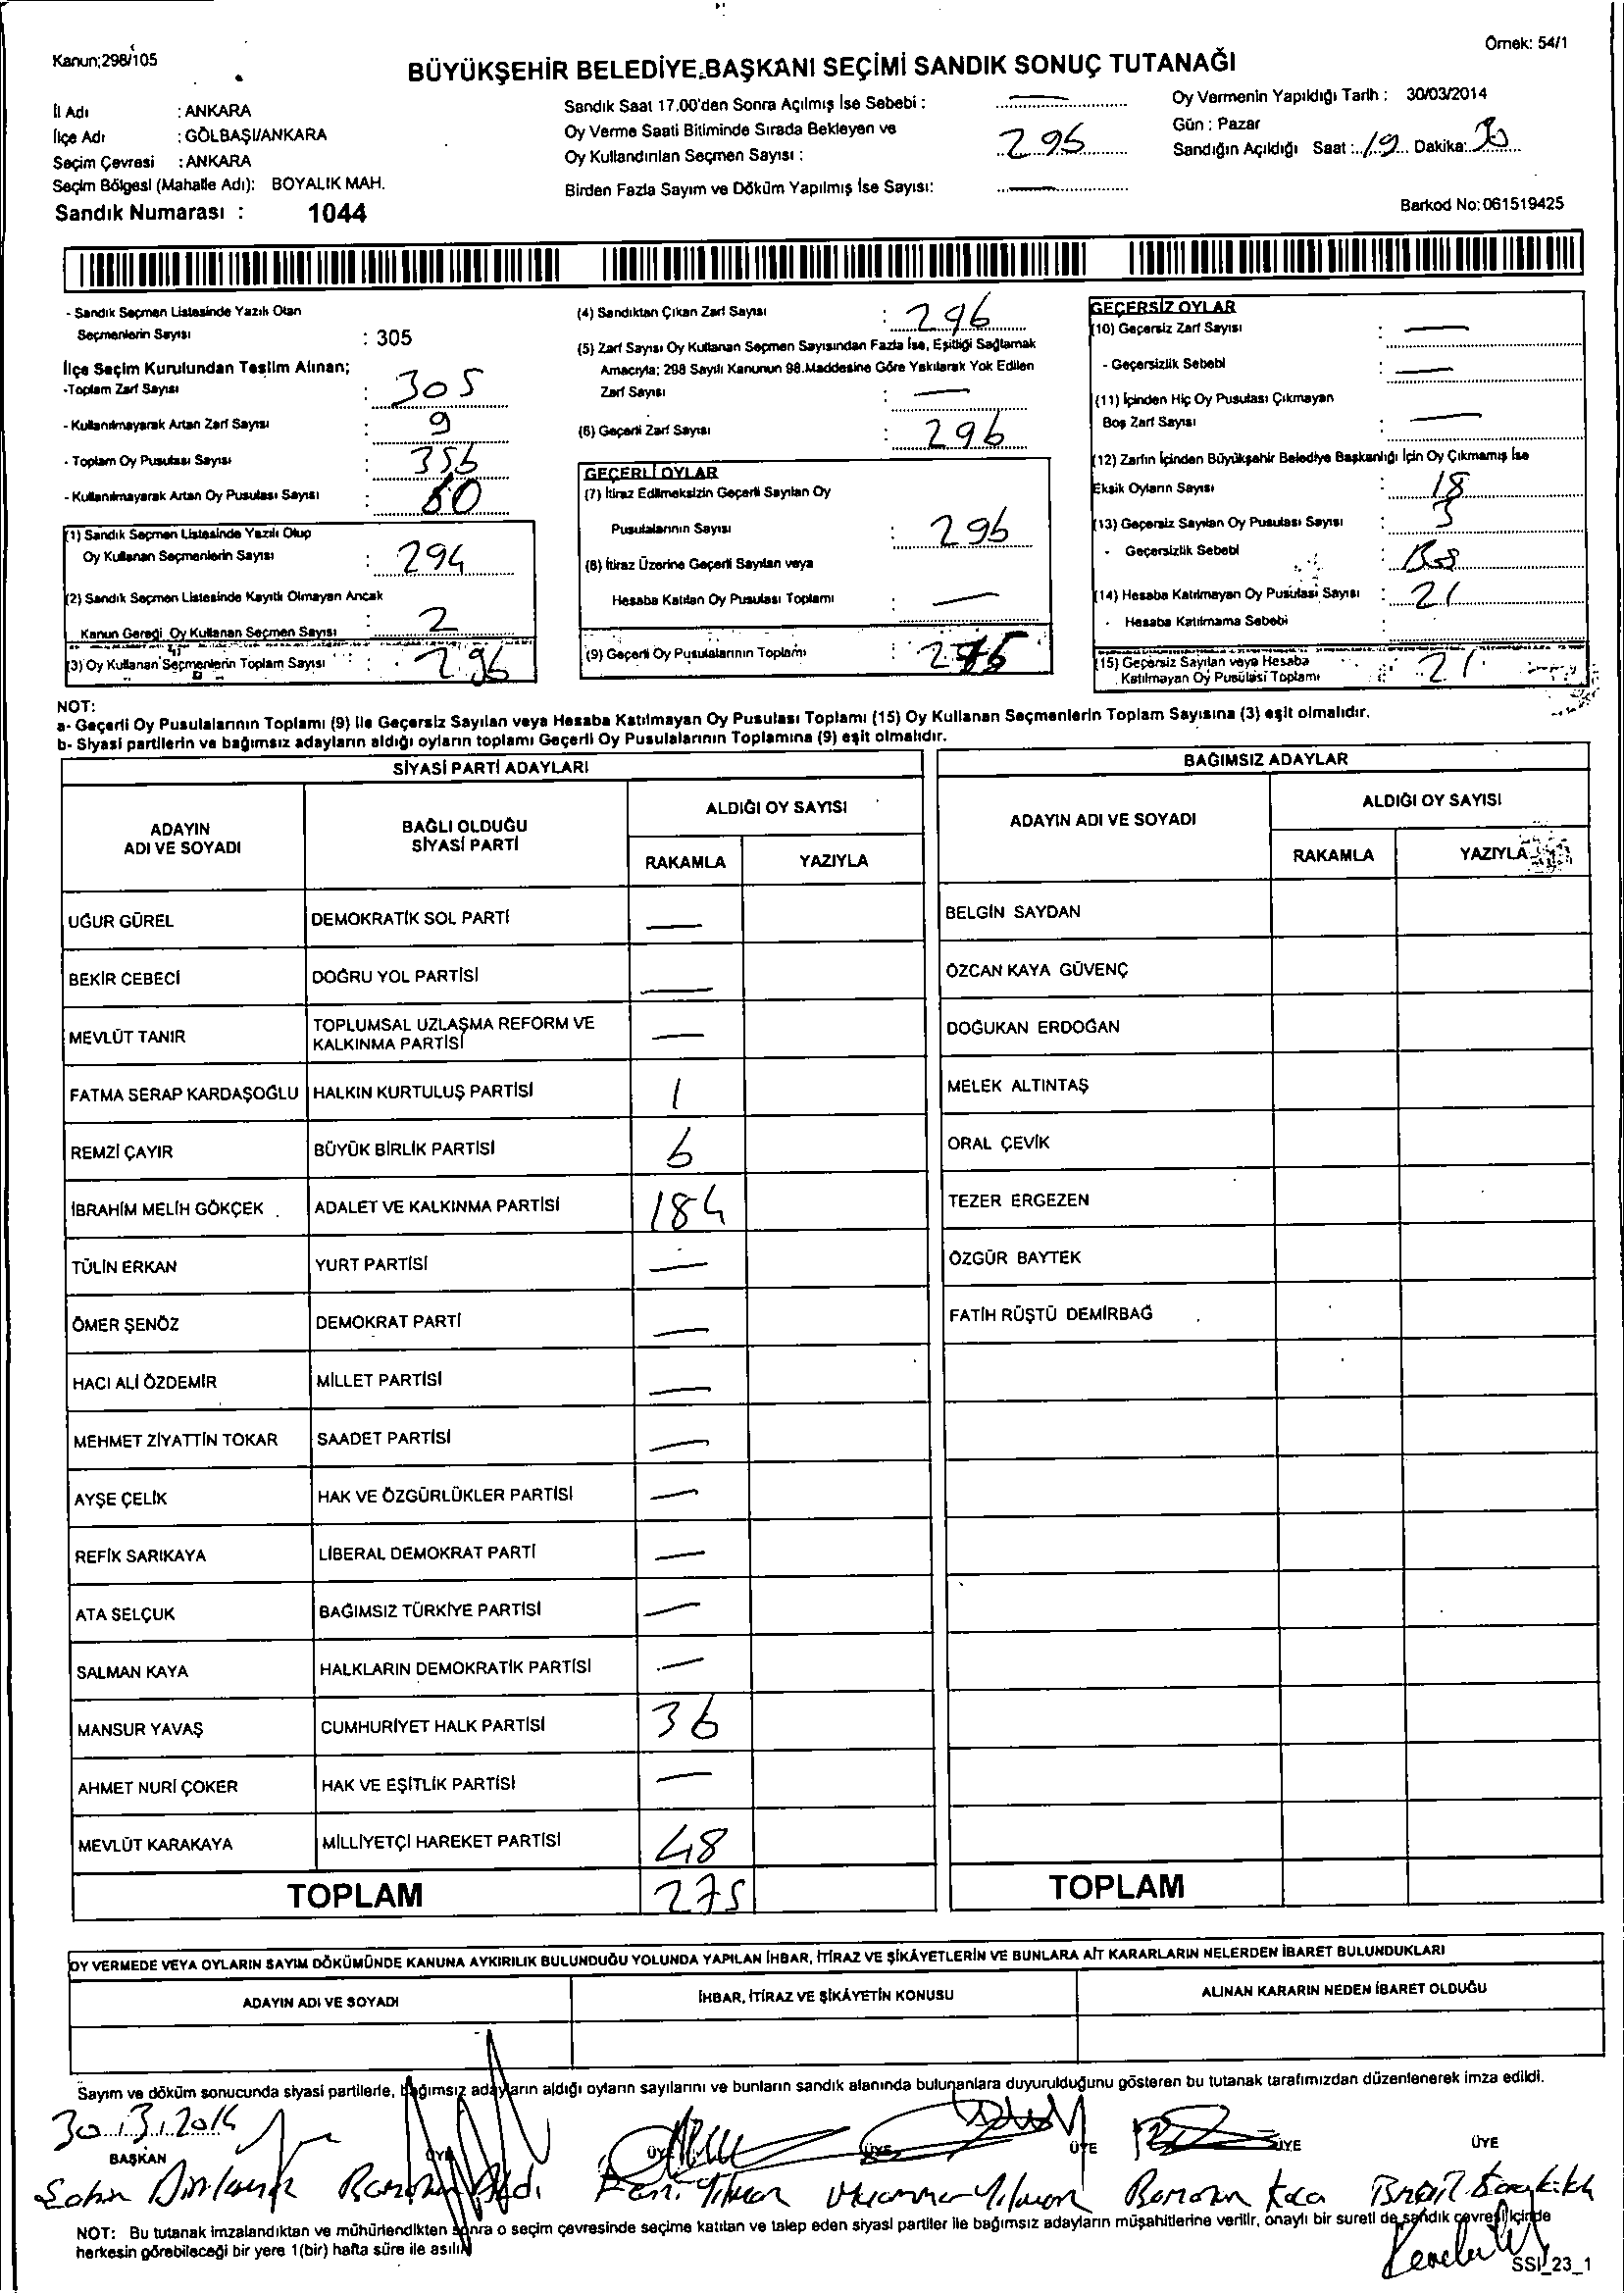 Kanun;298/105
Örnek: 54/1
BÜYÜKŞEHİR BELEDİYE BAŞKANI SEÇİMİ SANDIK SONUÇ TUTANAĞI
İl Adı : ANKARA
İlçe Adı : GÖLBAŞI/ANKARA
Seçim Çevresi : ANKARA
Seçim Bölgesi (Mahalle Adı): BOYALIK MAH.
Sandık Numarası : 1044
Sandık Saat 17.00'den Sonra Açılmış İse Sebebi : —
Oy Verme Saati Bitiminde Sırada Bekleyen ve
Oy Kullandırılan Seçmen Sayısı : 295
Birden Fazla Sayım ve Döküm Yapılmış İse Sayısı: —
Oy Vermenin Yapıldığı Tarih : 30/03/2014
Gün : Pazar
Sandığın Açıldığı Saat : 19 Dakika:
Barkod No: 061519425
- Sandık Seçmen Listesinde Yazılı Olan
Seçmenlerin Sayısı : 305
İlçe Seçim Kurulundan Teslim Alınan;
-Toplam Zarf Sayısı : 305
- Kullanılmayarak Artan Zarf Sayısı : 9
- Toplam Oy Pusulası Sayısı : 356
- Kullanılmayarak Artan Oy Pusulası Sayısı : 60
(1) Sandık Seçmen Listesinde Yazılı Olup
Oy Kullanan Seçmenlerin Sayısı : 294
(2) Sandık Seçmen Listesinde Kayıtlı Olmayan Ancak
Kanun Gereği Oy Kullanan Seçmen Sayısı : 2
(3) Oy Kullanan Seçmenlerin Toplam Sayısı : 296
(4) Sandıktan Çıkan Zarf Sayısı : 296
(5) Zarf Sayısı Oy Kullanan Seçmen Sayısından Fazla İse, Eşitliği Sağlamak
Amacıyla; 298 Sayılı Kanunun 98.Maddesine Göre Yakılarak Yok Edilen
Zarf Sayısı : —
(6) Geçerli Zarf Sayısı : 296
GEÇERLİ OYLAR
(7) İtiraz Edilmeksizin Geçerli Sayılan Oy
Pusulalarının Sayısı : 296
(8) İtiraz Üzerine Geçerli Sayılan veya
Hesaba Katılan Oy Pusulası Toplamı : —
(9) Geçerli Oy Pusulalarının Toplamı :
GEÇERSİZ OYLAR
(10) Geçersiz Zarf Sayısı : —
- Geçersizlik Sebebi : —
(11) İçinden Hiç Oy Pusulası Çıkmayan
Boş Zarf Sayısı : —
(12) Zarfın İçinden Büyükşehir Belediye Başkanlığı İçin Oy Çıkmamış İse
Eksik Oyların Sayısı : 18
(13) Geçersiz Sayılan Oy Pusulası Sayısı : 3
- Geçersizlik Sebebi : Boş
(14) Hesaba Katılmayan Oy Pusulası Sayısı : 21
- Hesaba Katılmama Sebebi :
(15) Geçersiz Sayılan veya Hesaba
Katılmayan Oy Pusulası Toplamı : 21
NOT:
a- Geçerli Oy Pusulalarının Toplamı (9) ile Geçersiz Sayılan veya Hesaba Katılmayan Oy Pusulası Toplamı (15) Oy Kullanan Seçmenlerin Toplam Sayısına (3) eşit olmalıdır.
b- Siyasi partilerin ve bağımsız adayların aldığı oyların toplamı Geçerli Oy Pusulalarının Toplamına (9) eşit olmalıdır.
SİYASİ PARTİ ADAYLARI
ADAYIN
ADI VE SOYADI
BAĞLI OLDUĞU
SİYASİ PARTİ
ALDIĞI OY SAYISI
RAKAMLA YAZIYLA
UĞUR GÜREL DEMOKRATİK SOL PARTİ —
BEKİR CEBECİ DOĞRU YOL PARTİSİ —
MEVLÜT TANIR TOPLUMSAL UZLAŞMA REFORM VE KALKINMA PARTİSİ —
FATMA SERAP KARDAŞOĞLU HALKIN KURTULUŞ PARTİSİ 1
REMZİ ÇAYIR BÜYÜK BİRLİK PARTİSİ 6
İBRAHİM MELİH GÖKÇEK ADALET VE KALKINMA PARTİSİ 184
TÜLİN ERKAN YURT PARTİSİ —
ÖMER ŞENÖZ DEMOKRAT PARTİ —
HACI ALİ ÖZDEMİR MİLLET PARTİSİ —
MEHMET ZİYATTİN TOKAR SAADET PARTİSİ —
AYŞE ÇELİK HAK VE ÖZGÜRLÜKLER PARTİSİ —
REFİK SARIKAYA LİBERAL DEMOKRAT PARTİ —
ATA SELÇUK BAĞIMSIZ TÜRKİYE PARTİSİ —
SALMAN KAYA HALKLARIN DEMOKRATİK PARTİSİ —
MANSUR YAVAŞ CUMHURİYET HALK PARTİSİ 36
AHMET NURİ ÇOKER HAK VE EŞİTLİK PARTİSİ —
MEVLÜT KARAKAYA MİLLİYETÇİ HAREKET PARTİSİ 48
TOPLAM 275
BAĞIMSIZ ADAYLAR
ADAYIN ADI VE SOYADI
ALDIĞI OY SAYISI
RAKAMLA YAZIYLA
BELGİN SAYDAN
ÖZCAN KAYA GÜVENÇ
DOĞUKAN ERDOĞAN
MELEK ALTINTAŞ
ORAL ÇEVİK
TEZER ERGEZEN
ÖZGÜR BAYTEK
FATİH RÜŞTÜ DEMİRBAĞ
TOPLAM
OY VERMEDE VEYA OYLARIN SAYIM DÖKÜMÜNDE KANUNA AYKIRILIK BULUNDUĞU YOLUNDA YAPILAN İHBAR, İTİRAZ VE ŞİKÂYETLERİN VE BUNLARA AİT KARARLARIN NELERDEN İBARET BULUNDUKLARI
ADAYIN ADI VE SOYADI
İHBAR, İTİRAZ VE ŞİKÂYETİN KONUSU
ALINAN KARARIN NEDEN İBARET OLDUĞU
Sayım ve döküm sonucunda siyasi partilerle, bağımsız adayların aldığı oyların sayılarını ve bunların sandık alanında bulunanlara duyurulduğunu gösteren bu tutanak tarafımızdan düzenlenerek imza edildi.
30.3.2014
BAŞKAN ÜYE ÜYE ÜYE ÜYE ÜYE ÜYE
Yılmaz Yılmaz Ramazan Koca İsmail
NOT: Bu tutanak imzalandıktan ve mühürlendikten sonra o seçim çevresinde seçime katılan ve talep eden siyasi partiler ile bağımsız adayların müşahitlerine verilir, onaylı bir sureti de sandık çevresi içinde
herkesin görebileceği bir yere 1(bir) hafta süre ile asılır.
SSI_23_1